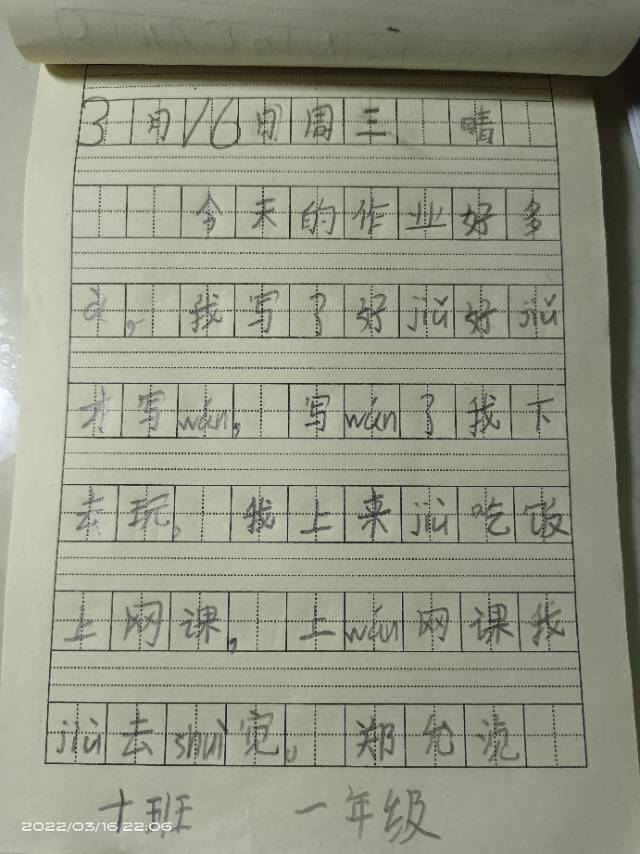 3月16日周三 晴
今天的作业好多
à，我写了好jiǔ好jiǔ
才写wán，写wán了我下
去玩，我上来jiù吃饭
上网课，上wán网课我
jiù去shuì觉。郑允
十班 一年级
2022/03/16 22:06